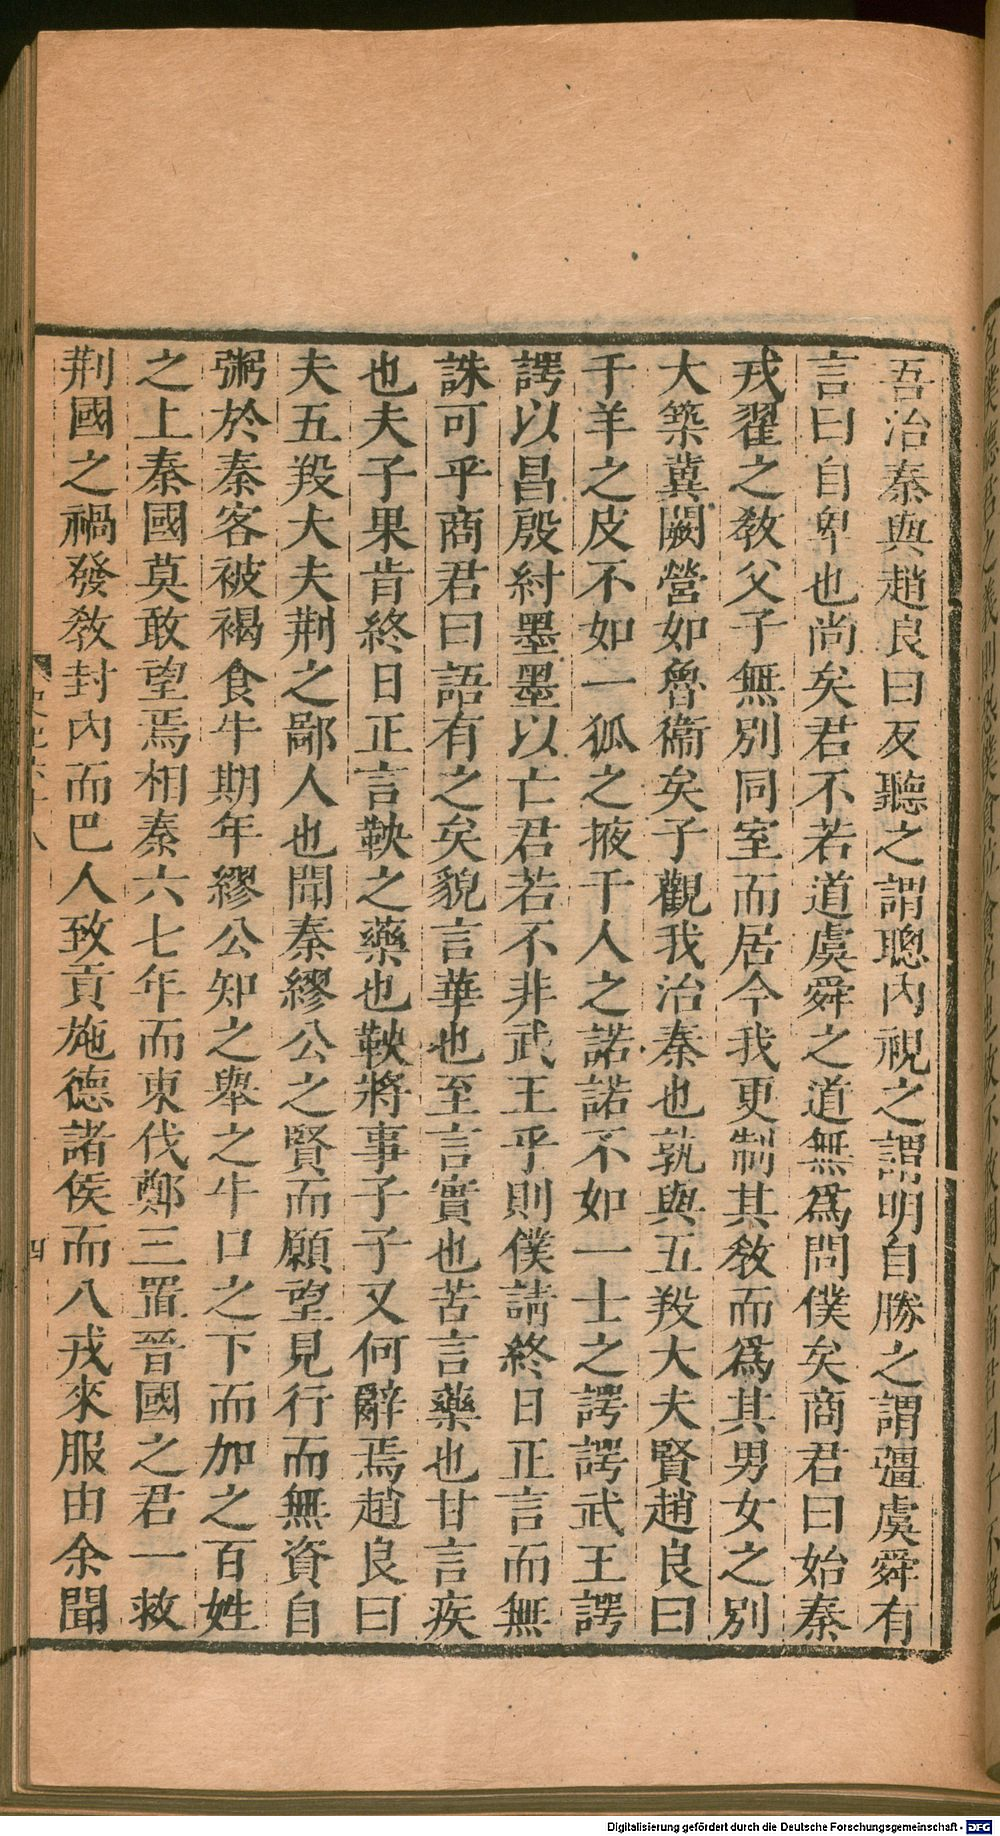 吾治秦與趙良曰反聽之謂聰內視之謂明自勝之謂彊虞舜有
言曰自卑也尚矣君不若道虞舜之道無爲問僕矣商君曰始秦
戎翟之敎父子無別同室而居今我更制其敎而爲其男女之別
大築冀闕營如魯衞矣子觀我治秦也孰與五羖大夫賢趙良曰
千羊之皮不如一狐之掖千人之諾諾不如一士之諤諤武王諤
諤以昌殷紂墨墨以亡君若不非武王乎則僕請終日正言而無
誅可乎商君曰語有之矣貌言華也至言實也苦言藥也甘言疾
也夫子果肯終日正言鞅之藥也鞅將事子子又何辭焉趙良曰
夫五羖大夫荆之鄙人也聞秦繆公之賢而願望見行而無資自
粥於秦客被褐食牛期年繆公知之舉之牛口之下而加之百姓
之上秦國莫敢望焉相秦六七年而東伐鄭三置晉國之君一救
荆國之禍發敎封內而巴人致貢施德諸侯而八戎來服由余聞
四
Digitalisierung gefördert durch die Deutsche Forschungsgemeinschaft - DFG